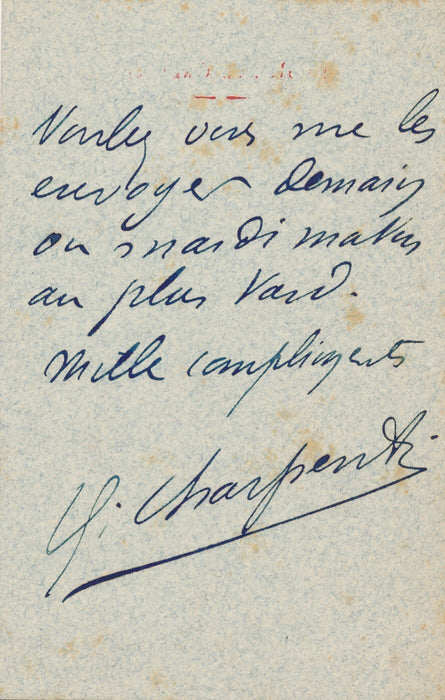 Voulez vous me les
envoyer demain
ou mardi matin
au plus tard.
Mille compliments
G. Charpentier